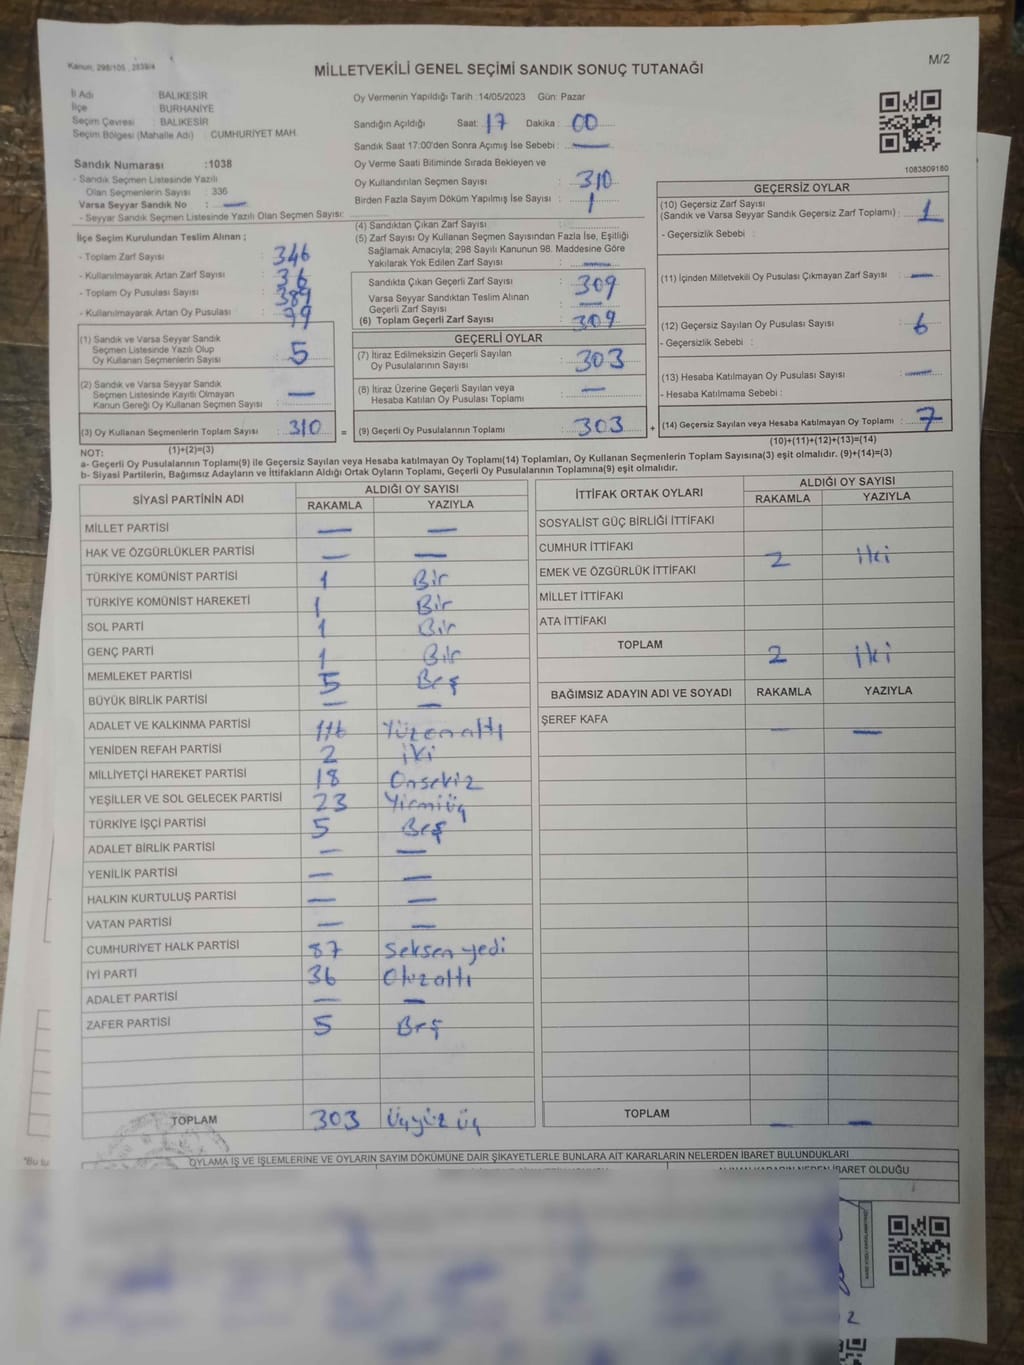 Kanun, 298/105 , 2839/4
M/2
MİLLETVEKİLİ GENEL SEÇİMİ SANDIK SONUÇ TUTANAĞI
İl Adı BALIKESİR
İlçe BURHANİYE
Seçim Çevresi : BALIKESİR
Seçim Bölgesi (Mahalle Adı) : CUMHURİYET MAH.
Sandık Numarası :1038
- Sandık Seçmen Listesinde Yazılı
Olan Seçmenlerin Sayısı : 336
Varsa Seyyar Sandık No : —
- Seyyar Sandık Seçmen Listesinde Yazılı Olan Seçmen Sayısı:
Oy Vermenin Yapıldığı Tarih :14/05/2023 Gün: Pazar
Sandığın Açıldığı Saat: 17 Dakika : 00
Sandık Saat 17:00'den Sonra Açımış İse Sebebi : —
Oy Verme Saati Bitiminde Sırada Bekleyen ve
Oy Kullandırılan Seçmen Sayısı : 310
Birden Fazla Sayım Döküm Yapılmış İse Sayısı : 1
1083809180
İlçe Seçim Kurulundan Teslim Alınan ;
- Toplam Zarf Sayısı : 346
- Kullanılmayarak Artan Zarf Sayısı : 36
- Toplam Oy Pusulası Sayısı : 389
- Kullanılmayarak Artan Oy Pusulası : 79
(1) Sandık ve Varsa Seyyar Sandık
Seçmen Listesinde Yazılı Olup
Oy Kullanan Seçmenlerin Sayısı : 5
(2) Sandık ve Varsa Seyyar Sandık
Seçmen Listesinde Kayıtlı Olmayan
Kanun Gereği Oy Kullanan Seçmen Sayısı : —
(3) Oy Kullanan Seçmenlerin Toplam Sayısı : 310 =
(1)+(2)=(3)
(4) Sandıktan Çıkan Zarf Sayısı :
(5) Zarf Sayısı Oy Kullanan Seçmen Sayısından Fazla İse, Eşitliği
Sağlamak Amacıyla; 298 Sayılı Kanunun 98. Maddesine Göre
Yakılarak Yok Edilen Zarf Sayısı : —
Sandıkta Çıkan Geçerli Zarf Sayısı : 309
Varsa Seyyar Sandıktan Teslim Alınan
Geçerli Zarf Sayısı : —
(6) Toplam Geçerli Zarf Sayısı : 309
GEÇERLİ OYLAR
(7) İtiraz Edilmeksizin Geçerli Sayılan
Oy Pusulalarının Sayısı : 303
(8) İtiraz Üzerine Geçerli Sayılan veya
Hesaba Katılan Oy Pusulası Toplamı : —
(9) Geçerli Oy Pusulalarının Toplamı : 303 +
GEÇERSİZ OYLAR
(10) Geçersiz Zarf Sayısı
(Sandık ve Varsa Seyyar Sandık Geçersiz Zarf Toplamı) : 1
- Geçersizlik Sebebi :
(11) İçinden Milletvekili Oy Pusulası Çıkmayan Zarf Sayısı : —
(12) Geçersiz Sayılan Oy Pusulası Sayısı : 6
- Geçersizlik Sebebi :
(13) Hesaba Katılmayan Oy Pusulası Sayısı : —
- Hesaba Katılmama Sebebi :
(14) Geçersiz Sayılan veya Hesaba Katılmayan Oy Toplamı : 7
(10)+(11)+(12)+(13)=(14)
NOT:
a- Geçerli Oy Pusulalarının Toplamı(9) ile Geçersiz Sayılan veya Hesaba katılmayan Oy Toplamı(14) Toplamları, Oy Kullanan Seçmenlerin Toplam Sayısına(3) eşit olmalıdır. (9)+(14)=(3)
b- Siyasi Partilerin, Bağımsız Adayların ve İttifakların Aldığı Ortak Oyların Toplamı, Geçerli Oy Pusulalarının Toplamına(9) eşit olmalıdır.
SİYASİ PARTİNİN ADI ALDIĞI OY SAYISI
RAKAMLA YAZIYLA
MİLLET PARTİSİ — —
HAK VE ÖZGÜRLÜKLER PARTİSİ — —
TÜRKİYE KOMÜNİST PARTİSİ 1 Bir
TÜRKİYE KOMÜNİST HAREKETİ 1 Bir
SOL PARTİ 1 Bir
GENÇ PARTİ 1 Bir
MEMLEKET PARTİSİ 5 Beş
BÜYÜK BİRLİK PARTİSİ — —
ADALET VE KALKINMA PARTİSİ 116 Yüzonaltı
YENİDEN REFAH PARTİSİ 2 iki
MİLLİYETÇİ HAREKET PARTİSİ 18 Onsekiz
YEŞİLLER VE SOL GELECEK PARTİSİ 23 Yirmiüç
TÜRKİYE İŞÇİ PARTİSİ 5 Beş
ADALET BİRLİK PARTİSİ — —
YENİLİK PARTİSİ — —
HALKIN KURTULUŞ PARTİSİ — —
VATAN PARTİSİ — —
CUMHURİYET HALK PARTİSİ 87 Seksen yedi
İYİ PARTİ 36 Otuzaltı
ADALET PARTİSİ — —
ZAFER PARTİSİ 5 Beş
TOPLAM 303 Üçyüz üç
İTTİFAK ORTAK OYLARI ALDIĞI OY SAYISI
RAKAMLA YAZIYLA
SOSYALİST GÜÇ BİRLİĞİ İTTİFAKI
CUMHUR İTTİFAKI 2 İki
EMEK VE ÖZGÜRLÜK İTTİFAKI
MİLLET İTTİFAKI
ATA İTTİFAKI
TOPLAM 2 iki
BAĞIMSIZ ADAYIN ADI VE SOYADI RAKAMLA YAZIYLA
ŞEREF KAFA — —
TOPLAM — —
OYLAMA İŞ VE İŞLEMLERİNE VE OYLARIN SAYIM DÖKÜMÜNE DAİR ŞİKAYETLERLE BUNLARA AİT KARARLARIN NELERDEN İBARET BULUNDUKLARI
İBARET OLDUĞU